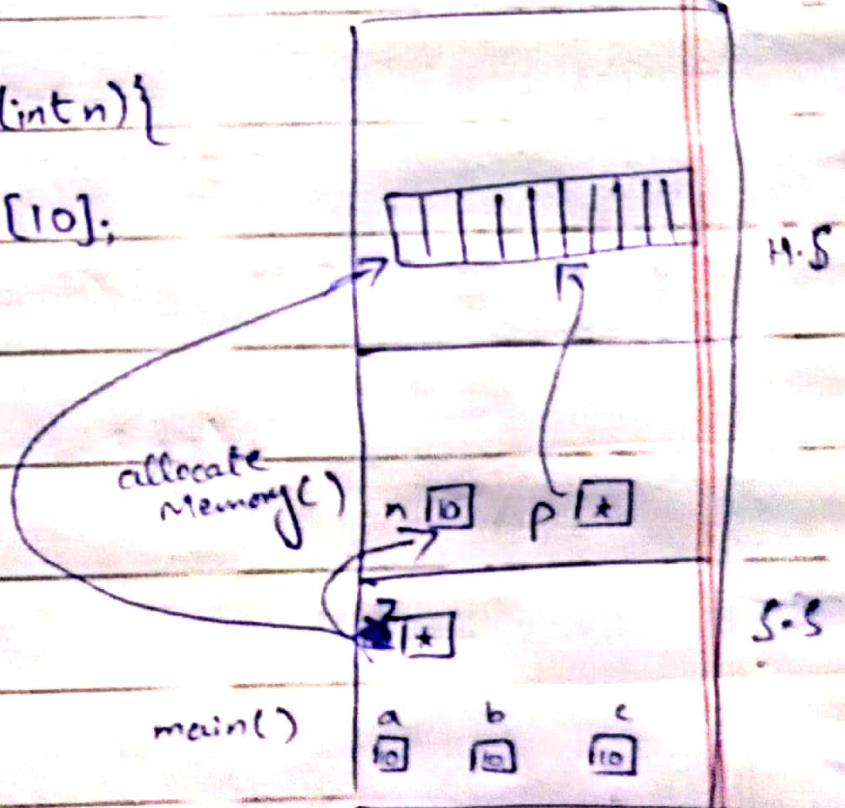 (int n){
[10];
H.S
allocate
Memory()
n 10 p *
*
S.S
main()
a b c
10 10 10